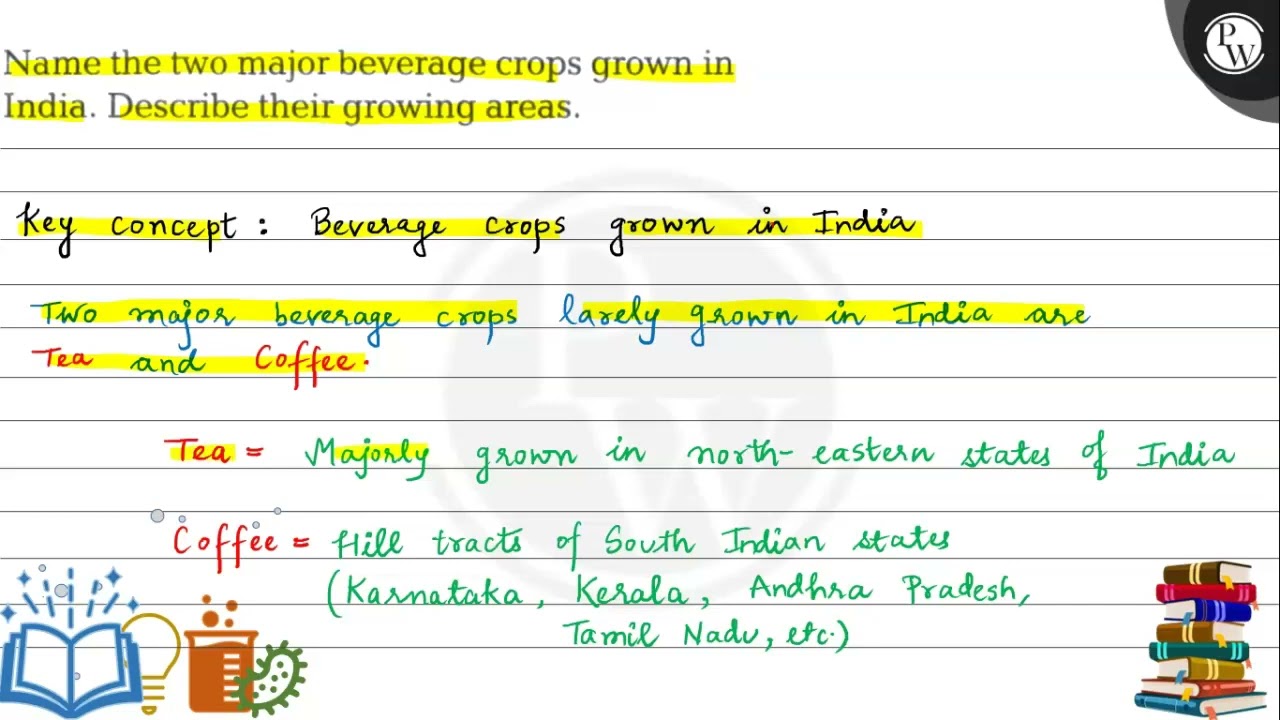 Name the two major beverage crops grown in
India. Describe their growing areas.
PW
Key concept : Beverage crops grown in India
Two major beverage crops larely grown in India are
Tea and Coffee.
Tea = Majorly grown in north-eastern states of India
Coffee = Hill tracts of South Indian states
(Karnataka, Kerala, Andhra Pradesh,
Tamil Nadu, etc.)
PW